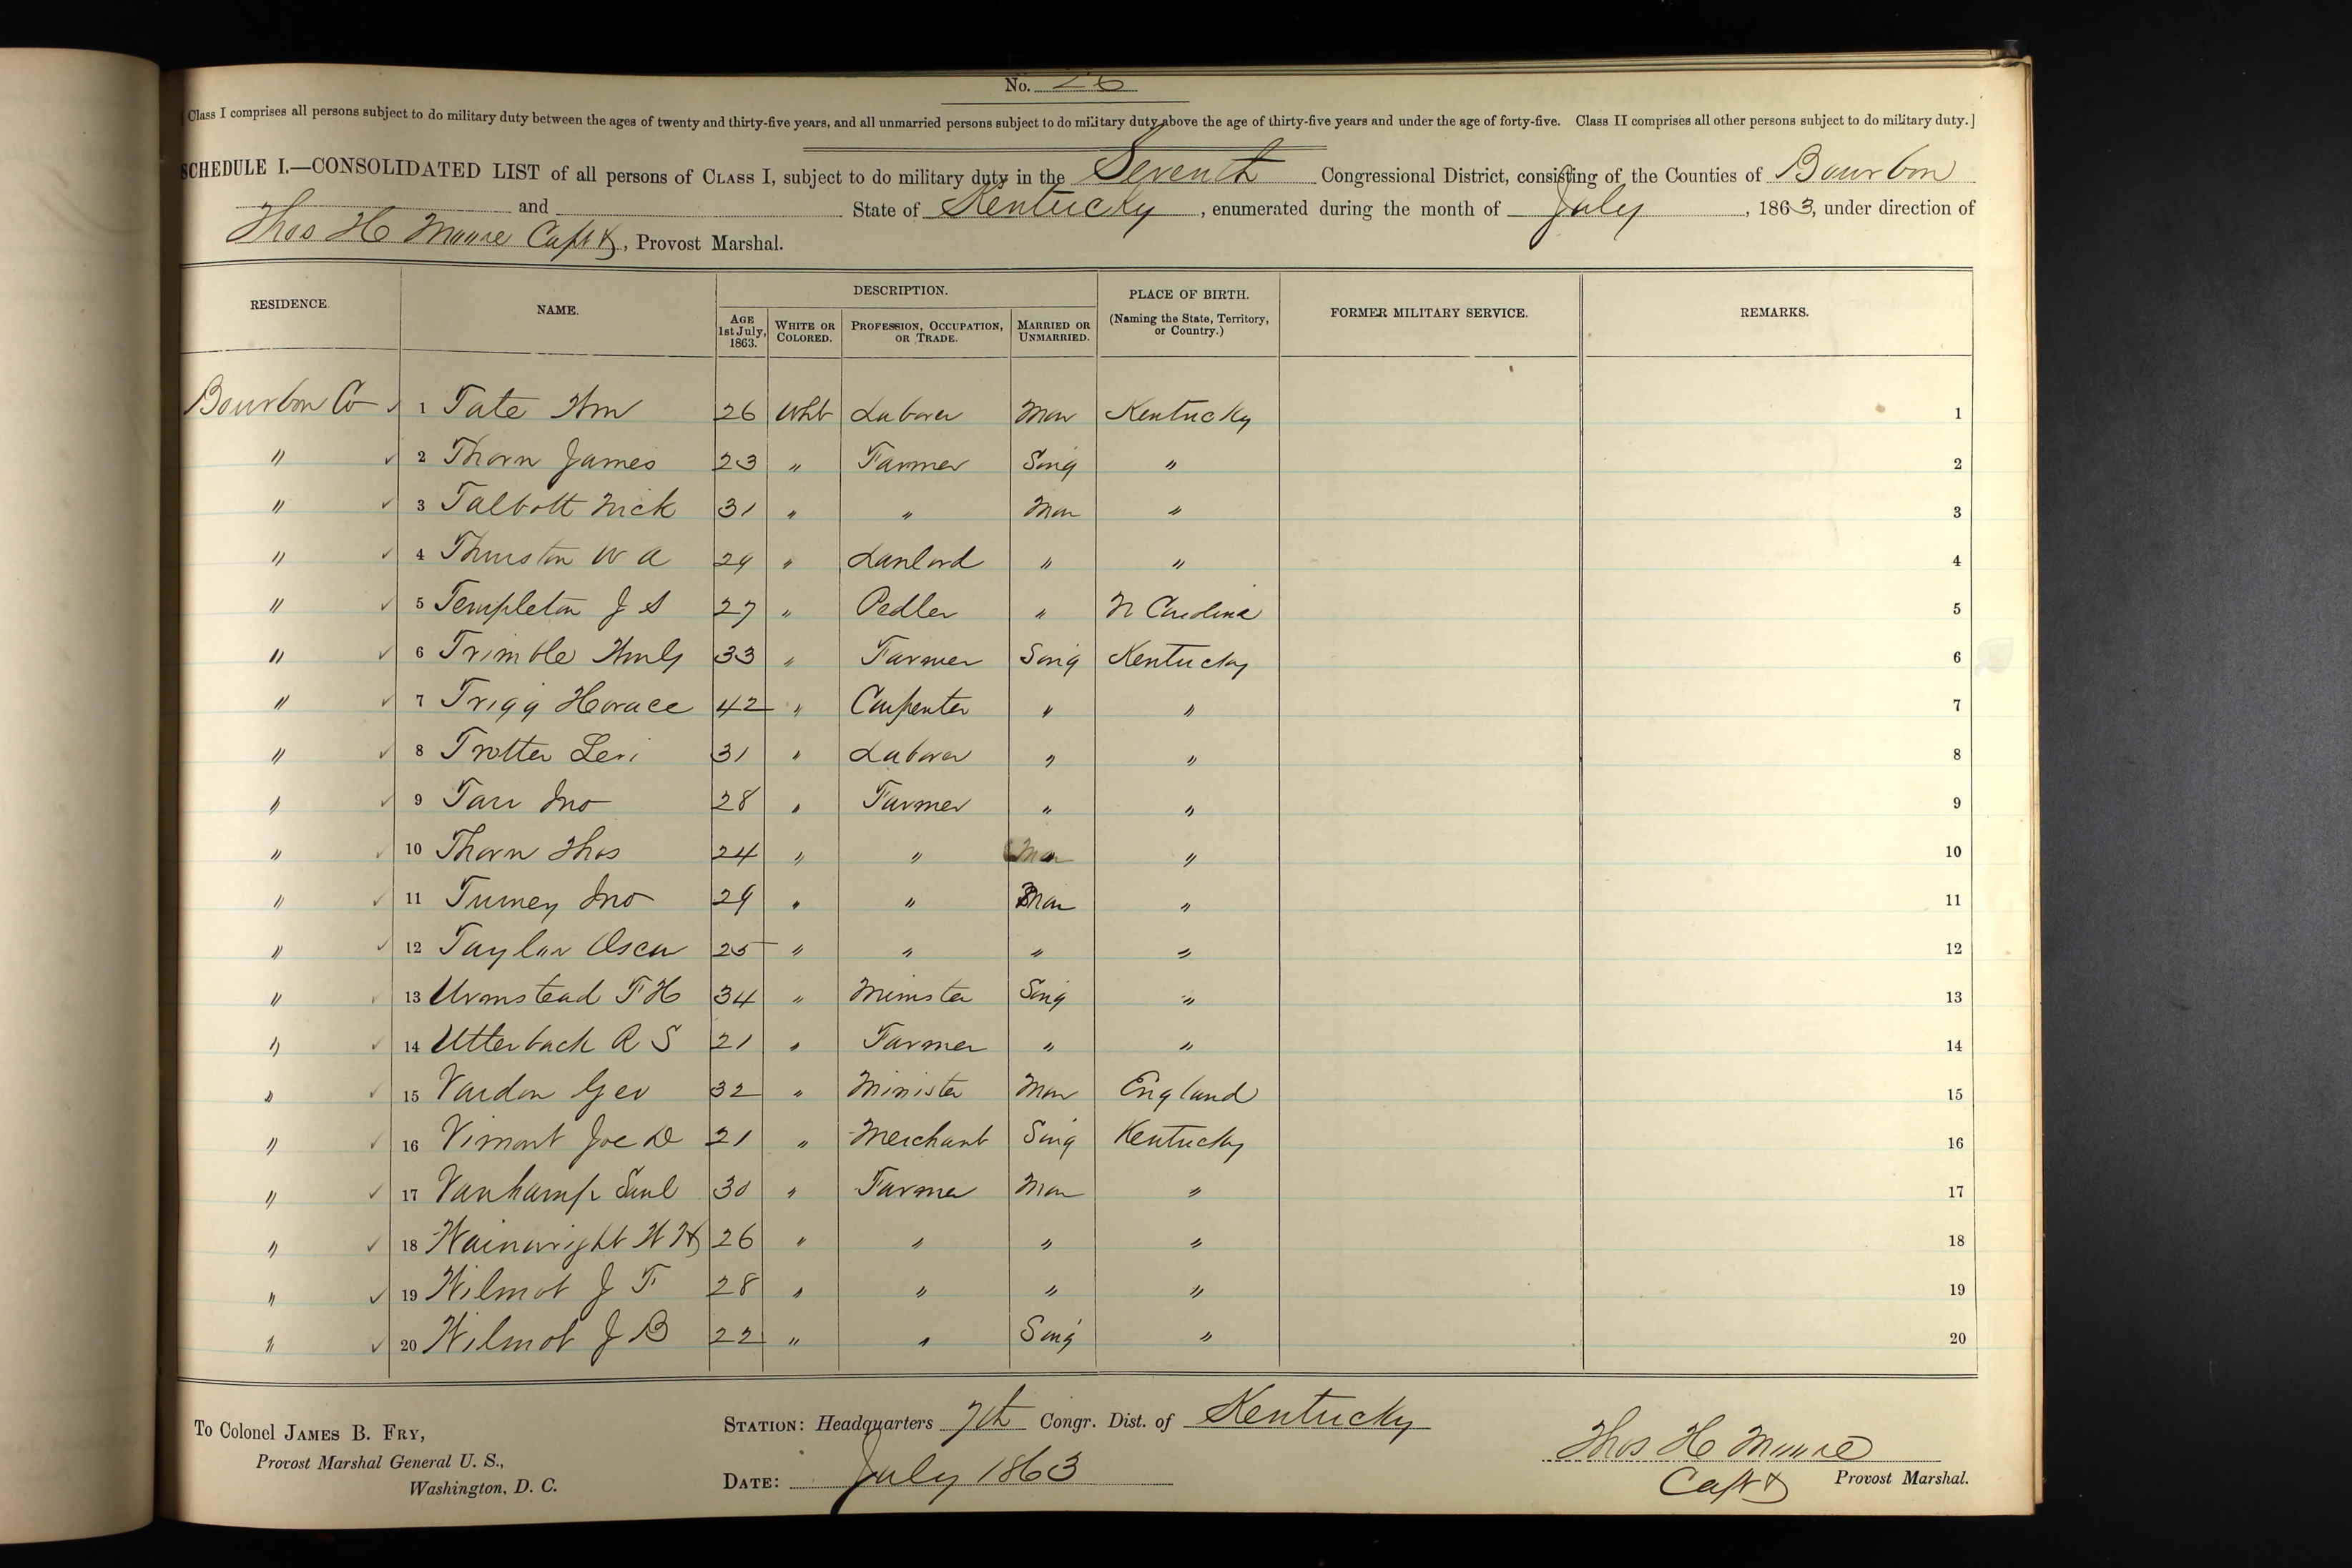 No. 26
[Class I comprises all persons subject to do military duty between the ages of twenty and thirty-five years, and all unmarried persons subject to do military duty above the age of thirty-five years and under the age of forty-five. Class II comprises all other persons subject to do military duty.]
SCHEDULE I.—CONSOLIDATED LIST of all persons of CLASS I, subject to do military duty in the Seventh Congressional District, consisting of the Counties of Bourbon
and State of Kentucky, enumerated during the month of July, 1863, under direction of
Thos H Moore Capt &, Provost Marshal.
RESIDENCE. NAME. DESCRIPTION. PLACE OF BIRTH. (Naming the State, Territory, or Country.) FORMER MILITARY SERVICE. REMARKS.
AGE 1st July, 1863. WHITE OR COLORED. PROFESSION, OCCUPATION, OR TRADE. MARRIED OR UNMARRIED.
Bourbon Co ✓ 1 Tate Wm 26 Wht Laborer Mar Kentucky 1
" ✓ 2 Thorn James 23 " Farmer Sing " 2
" ✓ 3 Talbott Nick 31 " " Mar " 3
" ✓ 4 Thurston W A 29 " Lanlord " " 4
" ✓ 5 Templeton J S 27 " Pedler " N Carolina 5
" ✓ 6 Trimble Wm G 33 " Farmer Sing Kentucky 6
" ✓ 7 Trigg Horace 42 " Carpenter " " 7
" ✓ 8 Trotter Levi 31 " Laborer " " 8
" ✓ 9 Tarr Jno 28 " Farmer " " 9
" ✓ 10 Thorn Thos 24 " " Mar " 10
" ✓ 11 Turney Jno 29 " " Mar " 11
" ✓ 12 Taylor Oscar 25 " " " " 12
" ✓ 13 Urmstead T H 34 " Minister Sing " 13
" ✓ 14 Utterback R S 21 " Farmer " " 14
" ✓ 15 Vardon Geo 32 " Minister Mar England 15
" ✓ 16 Vimont Joe D 21 " Merchant Sing Kentucky 16
" ✓ 17 Vanhamp Saml 30 " Farmer Mar " 17
" ✓ 18 Wainwright W H 26 " " " " 18
" ✓ 19 Wilmot J F 28 " " " " 19
" ✓ 20 Wilmot J B 22 " " Sing " 20
To Colonel JAMES B. FRY,
Provost Marshal General U. S.,
Washington, D. C.
STATION: Headquarters 7th Congr. Dist. of Kentucky
DATE: July 1863
Thos H Moore
Capt & Provost Marshal.